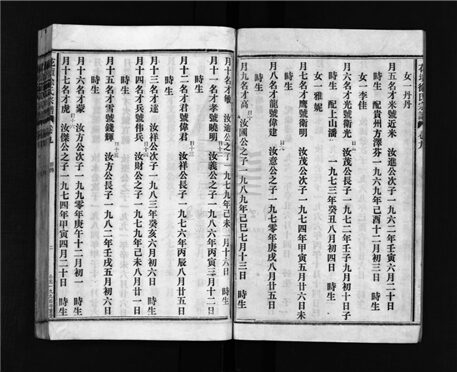 女一丹丹
月五名才米號近米 汝進公次子一九六二年壬寅六月二十日
時生 配貴州方澤芬一九六九年己酉十二月初三日 時生
女一李佳
月六名才光號衛光 汝茂公長子一九七二年壬子九月初十日子
時生 配上山潘 一九七三年癸丑八月初四日 時生
女一雅妮
月七名才鷹號衛明 汝茂公次子一九七四年甲寅五月廿六日未
時生
月八名才龍號偉建 汝意公之子一九七零年庚戌八月廿五日
時生
月九名才高 汝國公之子一九八九年己巳七月十三日 時生
月十名才敏 汝迪公之子一九七九年己未二月十六日 時生
月十一名才孝號曉明 汝義公之子一九八六年丙寅三月十二日
時生
月十二名才君號偉君 汝祥公長子一九七六年丙辰八月廿五日
時生
月十三名才遂 汝祥公次子一九八三年癸亥六月初六日 時生
月十四名才兵號伟兵 汝財公之子一九七九年己未八月廿一日
時生
月十五名才雪號錢輝 汝方公長子一九八二年壬戌五月初六日
時生
月十六名才豪 汝方公次子一九九零年庚午十二月初一 時生
月十七名才虎 汝儀公之子一九七四年甲寅四月二十日 時生